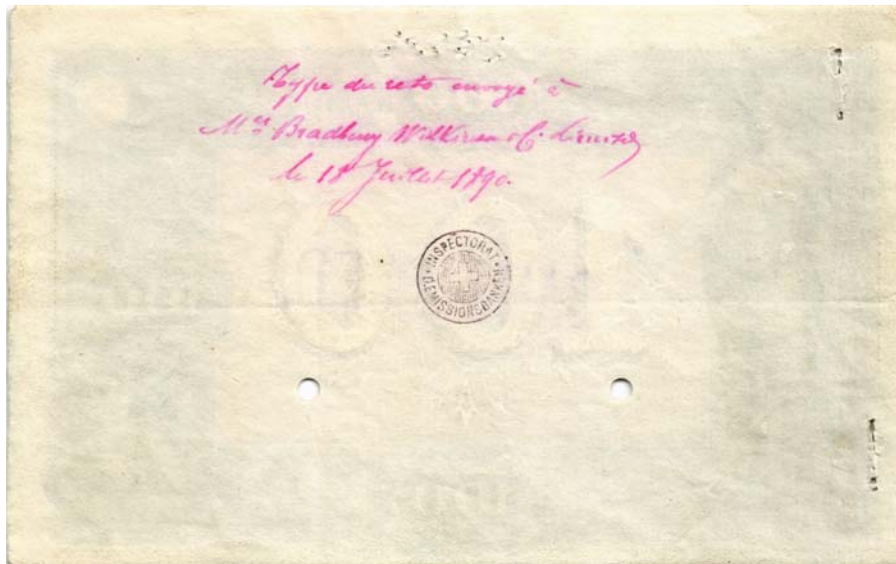 Type du recto envoyé à
Mrs Bradbury Wilkinson & Co Limited
le 18 Juillet 1890.
INSPECTORAT
D. EMISSIONSBANKEN